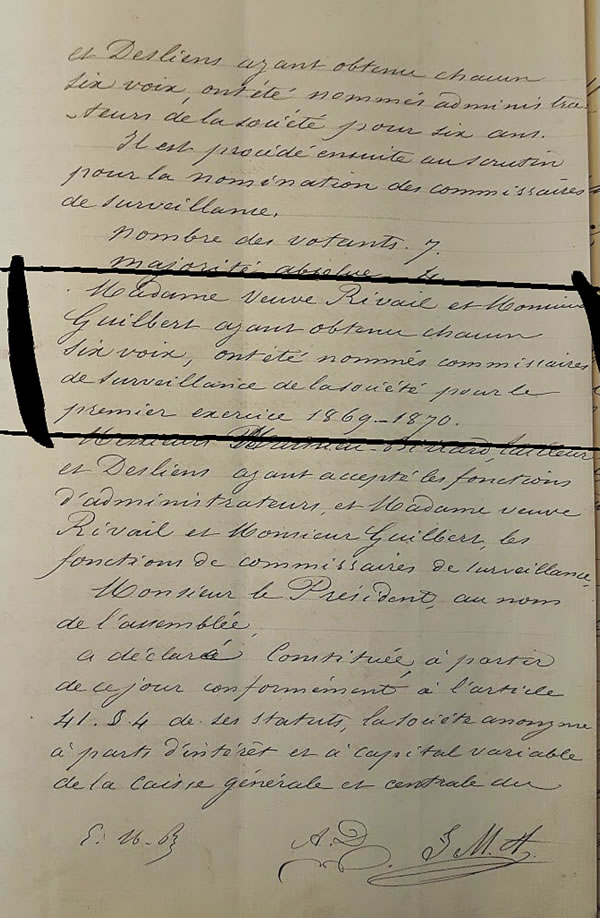 et Desliens ayant obtenu chacun
six voix, ont été nommés administra-
-teurs de la société pour six ans.
Il est procédé ensuite au scrutin
pour la nomination des commissaires
de surveillance.
nombre des votants. 7.
majorité absolue 4
Madame veuve Rivail et Monsieur
Guilbert ayant obtenu chacun
six voix, ont été nommés commissaires
de surveillance de la société pour le
premier exercice 1869-1870.
Messieurs Bittard, tailleur
et Desliens ayant accepté les fonctions
d'administrateurs, et Madame veuve
Rivail et Monsieur Guilbert, les
fonctions de commissaires de surveillance,
Monsieur le Président, au nom
de l'assemblée,
a déclaré Constituée, à partir
de ce jour conformément à l'article
41. § 4 de ses statuts, la société anonyme
à parts d'intérêt et à capital variable
de la Caisse générale et centrale du
A.D. J.M.A.